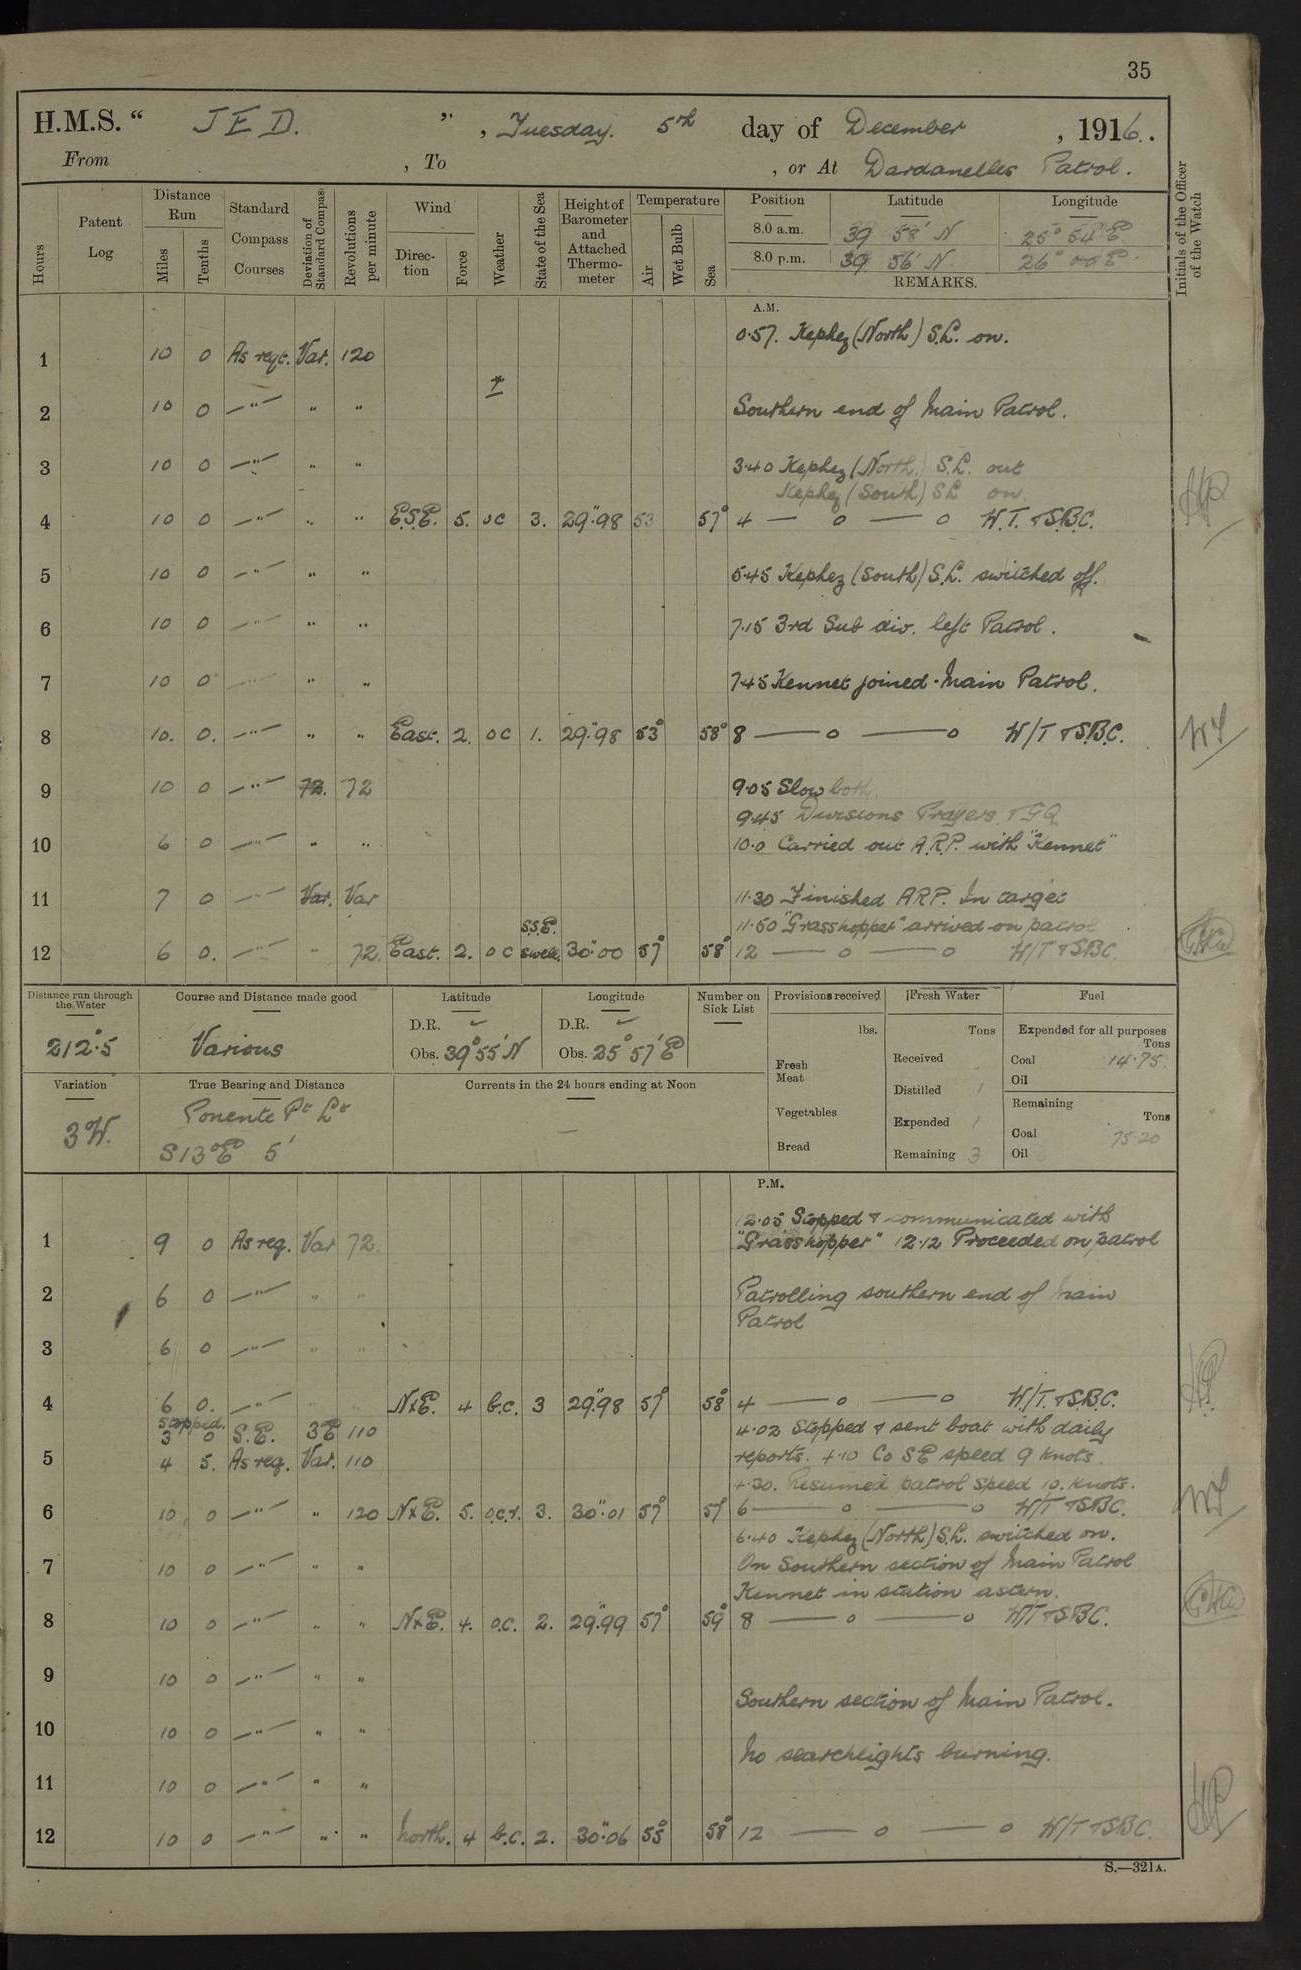 35
H.M.S. " JED. ", Tuesday. 5th day of December, 1916.
From , To , or At Dardanelles Patrol.
Hours
Patent Log
Distance Run
Miles
Tenths
Standard Compass Courses
Deviation of Standard Compass
Revolutions per minute
Wind
Direction
Force
Weather
State of the Sea
Height of Barometer and Attached Thermometer
Temperature
Air
Wet Bulb
Sea
Position Latitude Longitude
8.0 a.m. 39 58' N 25° 54' E
8.0 p.m. 39 56' N 26° 00 E
REMARKS.
Initials of the Officer of the Watch
A.M.
0.57. Kephez (North) S.L. on.
1 10 0 As reqt. Var. 120
2 10 0 —"— " " Southern end of Main Patrol.
3 10 0 —"— " " 3.40 Kephez (North) S.L. out
Kephez (South) SL on.
4 10 0 —"— " " E.S.E. 5. oc 3. 29".98 53 57° 4 — o — o W.T. & S.B.C.
5 10 0 —"— " " 5.45 Kephez (South) S.L. switched off.
6 10 0 —"— " " 7.15 3rd Sub div. left Patrol.
7 10 0 —"— " " 7.45 Kennet joined Main Patrol.
8 10. 0. —"— " " East. 2. oc 1. 29".98 53° 58° 8 — o — o W/T & S.B.C.
9 10 0 —"— 72. 72 9.05 Slow both.
9.45 Divisions Prayers & GQ
10 6 0 —"— " " 10.0 Carried out A.R.P. with "Kennet"
11 7 0 —"— Var. Var 11.30 Finished ARP. In target
S.S.E. 11.50 "Grasshopper" arrived on patrol
12 6 0. —"— " 72. East. 2. oc swell. 30".00 57° 58° 12 — o — o W/T & SBC.
Distance run through the Water
212.5
Course and Distance made good
Various
Latitude
D.R. ✓
Obs. 39° 55' N
Longitude
D.R. ✓
Obs. 25° 57' E
Number on Sick List
Provisions received
lbs.
Fresh Meat
Vegetables
Bread
Fresh Water
Tons
Received
Distilled 1
Expended 1
Remaining 3
Fuel
Expended for all purposes
Tons
Coal 14.75
Oil
Remaining
Tons
Coal 75.20
Oil
Variation
3°W.
True Bearing and Distance
Ponente Pt Lt
S 13° E 5'
Currents in the 24 hours ending at Noon
—
P.M.
12.05 Stopped & communicated with
1 9 0 As req. Var 72. "Grasshopper" 12.12 Proceeded on patrol
2 6 0 —"— " " Patrolling southern end of Main
Patrol
3 6 0 —"— " "
4 6 0. —"— NxE. 4 b.c. 3 29".98 57° 58° 4 — o — o W/T. & S.B.C.
Stopped.
3 0 S.E. 3E 110 4.02 Stopped & sent boat with daily
5 4 5. As req. Var. 110 reports. 4.10 Co SE speed 9 knots.
4.30. Resumed patrol speed 10. knots.
6 10 0 —"— " 120 NxE. 5. o.c.r. 3. 30".01 57° 57° 6 — o — o W/T & SBC.
6.40 Kephez (North) S.L. switched on.
7 10 0 —"— " " On Southern section of Main Patrol
Kennet in station astern.
8 10 0 —"— " " NxE. 4. o.c. 2. 29".99 57° 59° 8 — o — o W/T & SBC.
9 10 0 —"— " "
Southern section of Main Patrol.
10 10 0 —"— " "
No searchlights burning.
11 10 0 —"— " "
12 10 0 —"— " " North. 4 b.c. 2. 30".06 55° 58° 12 — o — o W/T & SBC.
S.—321A.